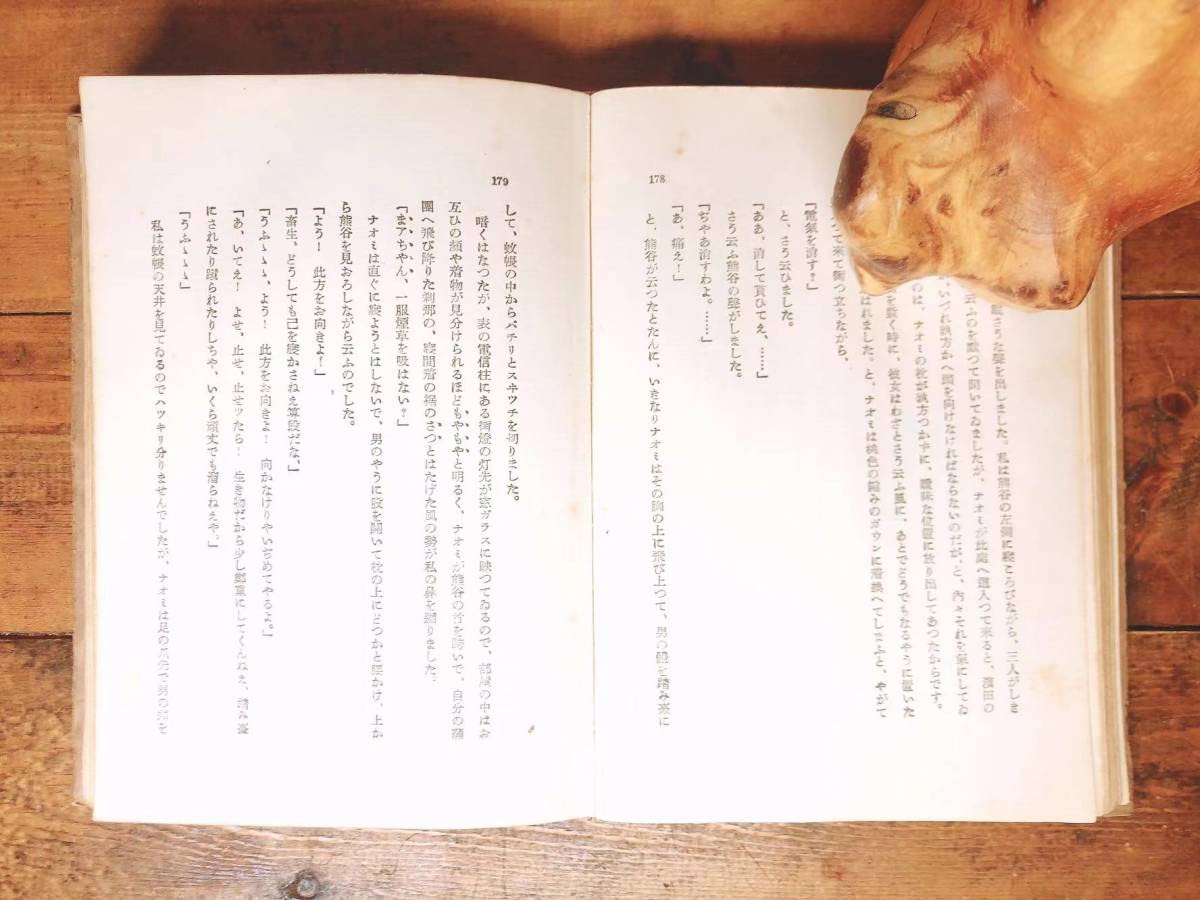 178
さうな聲を出しました。私は熊谷の左側に寝ころびながら、三人がしき
云ふのを默つて聞いてゐましたが、ナオミが此處へ這入つて來ると、濱田の
いづれ孰方かへ頭を向けなければならないのだが、と、內々それを氣にしてゐ
のは、ナオミの枕が孰方つかずに、曖昧な位置に放り出してあつたからです。
を敷く時に、彼女はわざとさう云ふ風に、あとでどうでもなるやうに置いた
はれました。と、ナオミは桃色の縮みのガウンに着換へてしまふと、やがて
つて來て衝つ立ちながら、
「電氣を消す?」
と、さう云ひました。
「ああ、消して貰ひてえ、……」
さう云ふ熊谷の聲がしました。
「ぢやあ消すわよ。……」
「あ、痛え!」
と、熊谷が云つたとたんに、いきなりナオミはその胸の上に飛び上つて、男の體を踏み臺に
179
して、蚊帳の中からパチリとスヰツチを切りました。
暗くはなつたが、表の電信柱にある街燈の灯先が窓ガラスに映つてゐるので、部屋の中はお
互ひの顏や着物が見分けられるほどもやもやと明るく、ナオミが熊谷の首を跨いで、自分の蒲
團へ飛び降りた刹那の、寢間着の裾のさつとはだけた風の勢が私の鼻を嬲りました。
「まアちやん、一服煙草を吸はない?」
ナオミは直ぐに寢ようとはしないで、男のやうに股を開いて枕の上にどつかと腰かけ、上か
ら熊谷を見おろしながら云ふのでした。
「よう! 此方をお向きよ!」
「畜生、どうしても己を寢かさねえ算段だな」
「うふゝゝゝ、よう! 此方をお向きよ! 向かなけりやいぢめてやるよ。」
「あ、いてえ! よせ、止せ、止せツたら! 生き物だから少し鄭重にしてくんねえ、踏み臺
にされたり蹴られたりしちや、いくら頑丈でも溜らねえや。」
「うふゝゝゝ」
私は蚊帳の天井を見てゐるのでハツキリ分りませんでしたが、ナオミは足の爪先で男の頭を